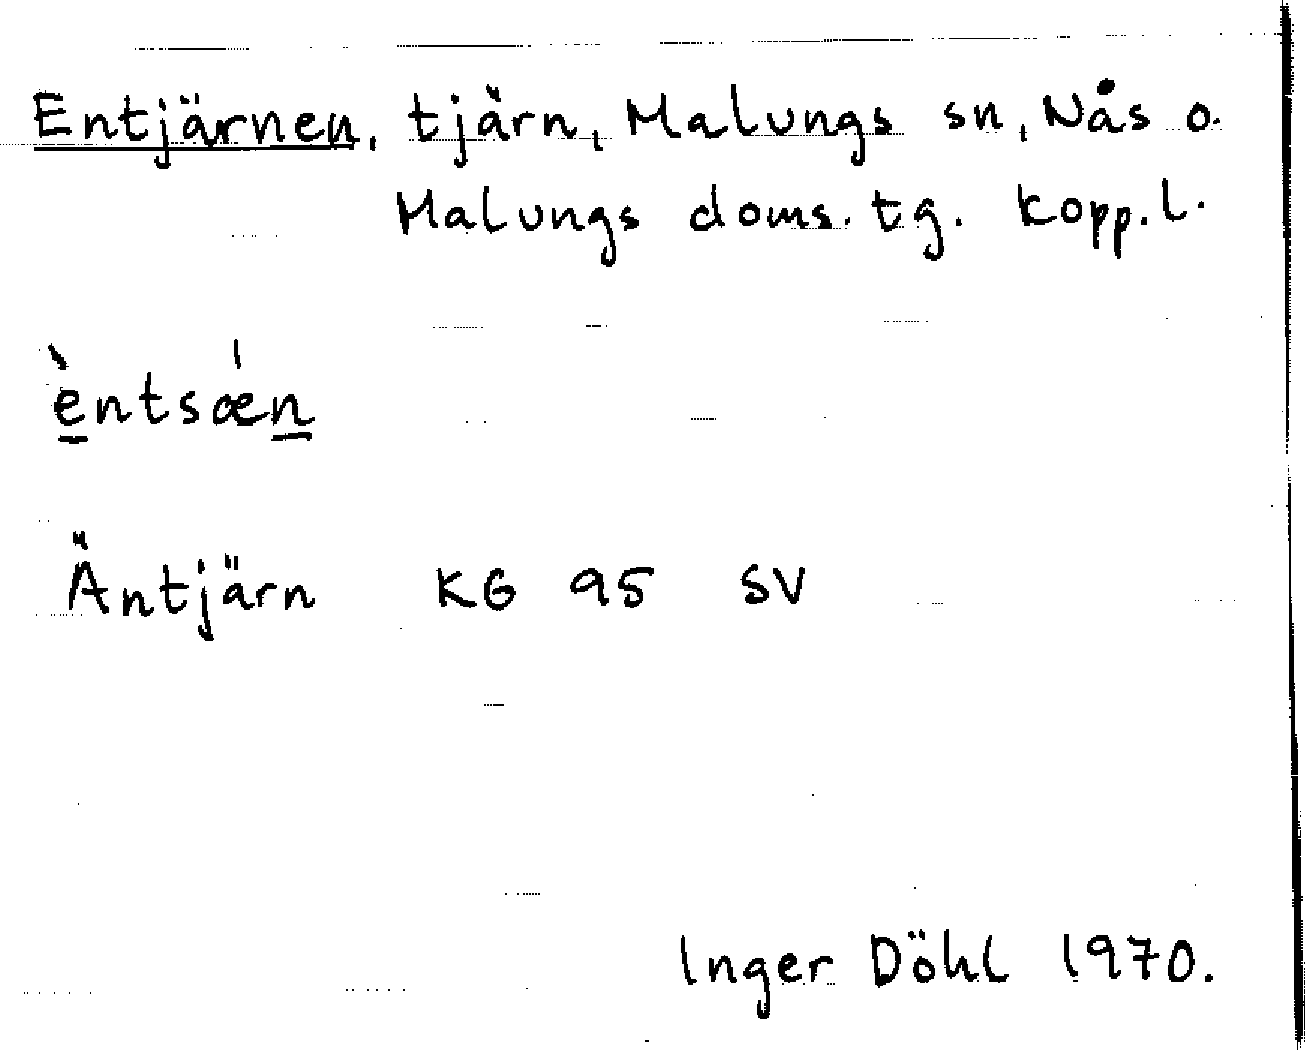 Entjärnen, tjärn, Malungs sn, Nås o.
Malungs doms. tg. Kopp. l.
èntsǽn
Äntjärn KG 95 SV
Inger Döhl 1970.